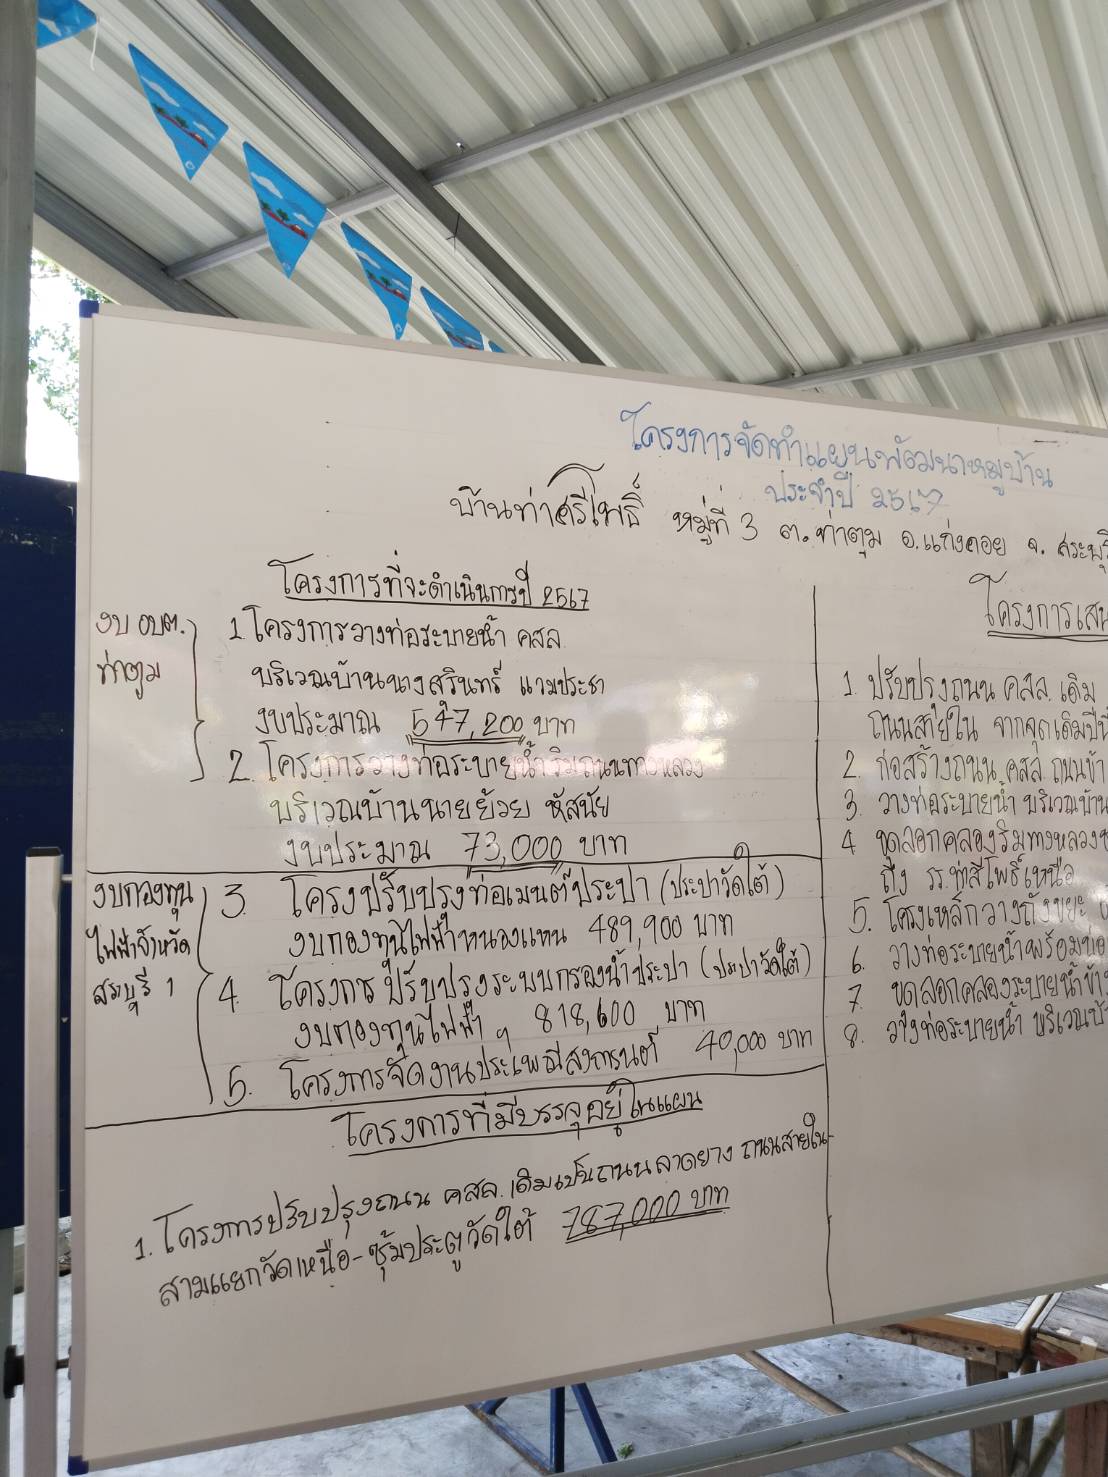 โครงการจัดทำแผนพัฒนาหมู่บ้าน
ประจำปี 2567
บ้านท่าศรีโพธิ์ หมู่ที่ 3 ต.ท่าตูม อ.แก่งคอย จ.สระบุรี
โครงการที่จะดำเนินการปี 2567
งบ อบต.
ท่าตูม
1. โครงการวางท่อระบายน้ำ คสล
บริเวณบ้านนางสุรินทร์ แวมประชา
งบประมาณ 547,200 บาท
2. โครงการวางท่อระบายน้ำริมถนนทางหลวง
บริเวณบ้านนายย้วย หัสนัย
งบประมาณ 73,000 บาท
งบกองทุน
ไฟฟ้าจังหวัด
สระบุรี 1
3. โครงปรับปรุงท่อเมนต์ประปา (ประปาวัดใต้)
งบกองทุนไฟฟ้าหนองแหน 489,900 บาท
4. โครงการ ปรับปรุงระบบกรองน้ำประปา (ประปาวัดใต้)
งบกองทุนไฟฟ้าฯ 818,600 บาท
5. โครงการจัดงานประเพณีสงกรานต์ 40,000 บาท
โครงการที่มีบรรจุอยู่ในแผน
1. โครงการปรับปรุงถนน คสล. เดิมเป็นถนนลาดยาง ถนนสายใน
สามแยกวัดเหนือ-ซุ้มประตูวัดใต้ 787,000 บาท
โครงการเสน
1. ปรับปรุงถนน คสล. เดิม
ถนนสายใน จากจุดเดิมปีนี้
2. ก่อสร้างถนน คสล. ถนนข้า
3. วางท่อระบายน้ำ บริเวณบ้าน
4 ขุดลอกคลองริมทางหลวง
ถึง รร.ท่าศรีโพธิ์เหนือ
5. โครงเหล็กวางถังขยะ
6. วางท่อระบายน้ำพร้อมบ่อ
7 ขุดลอกคลองระบายน้ำข้าง
8. วางท่อระบายน้ำ บริเวณบ้า